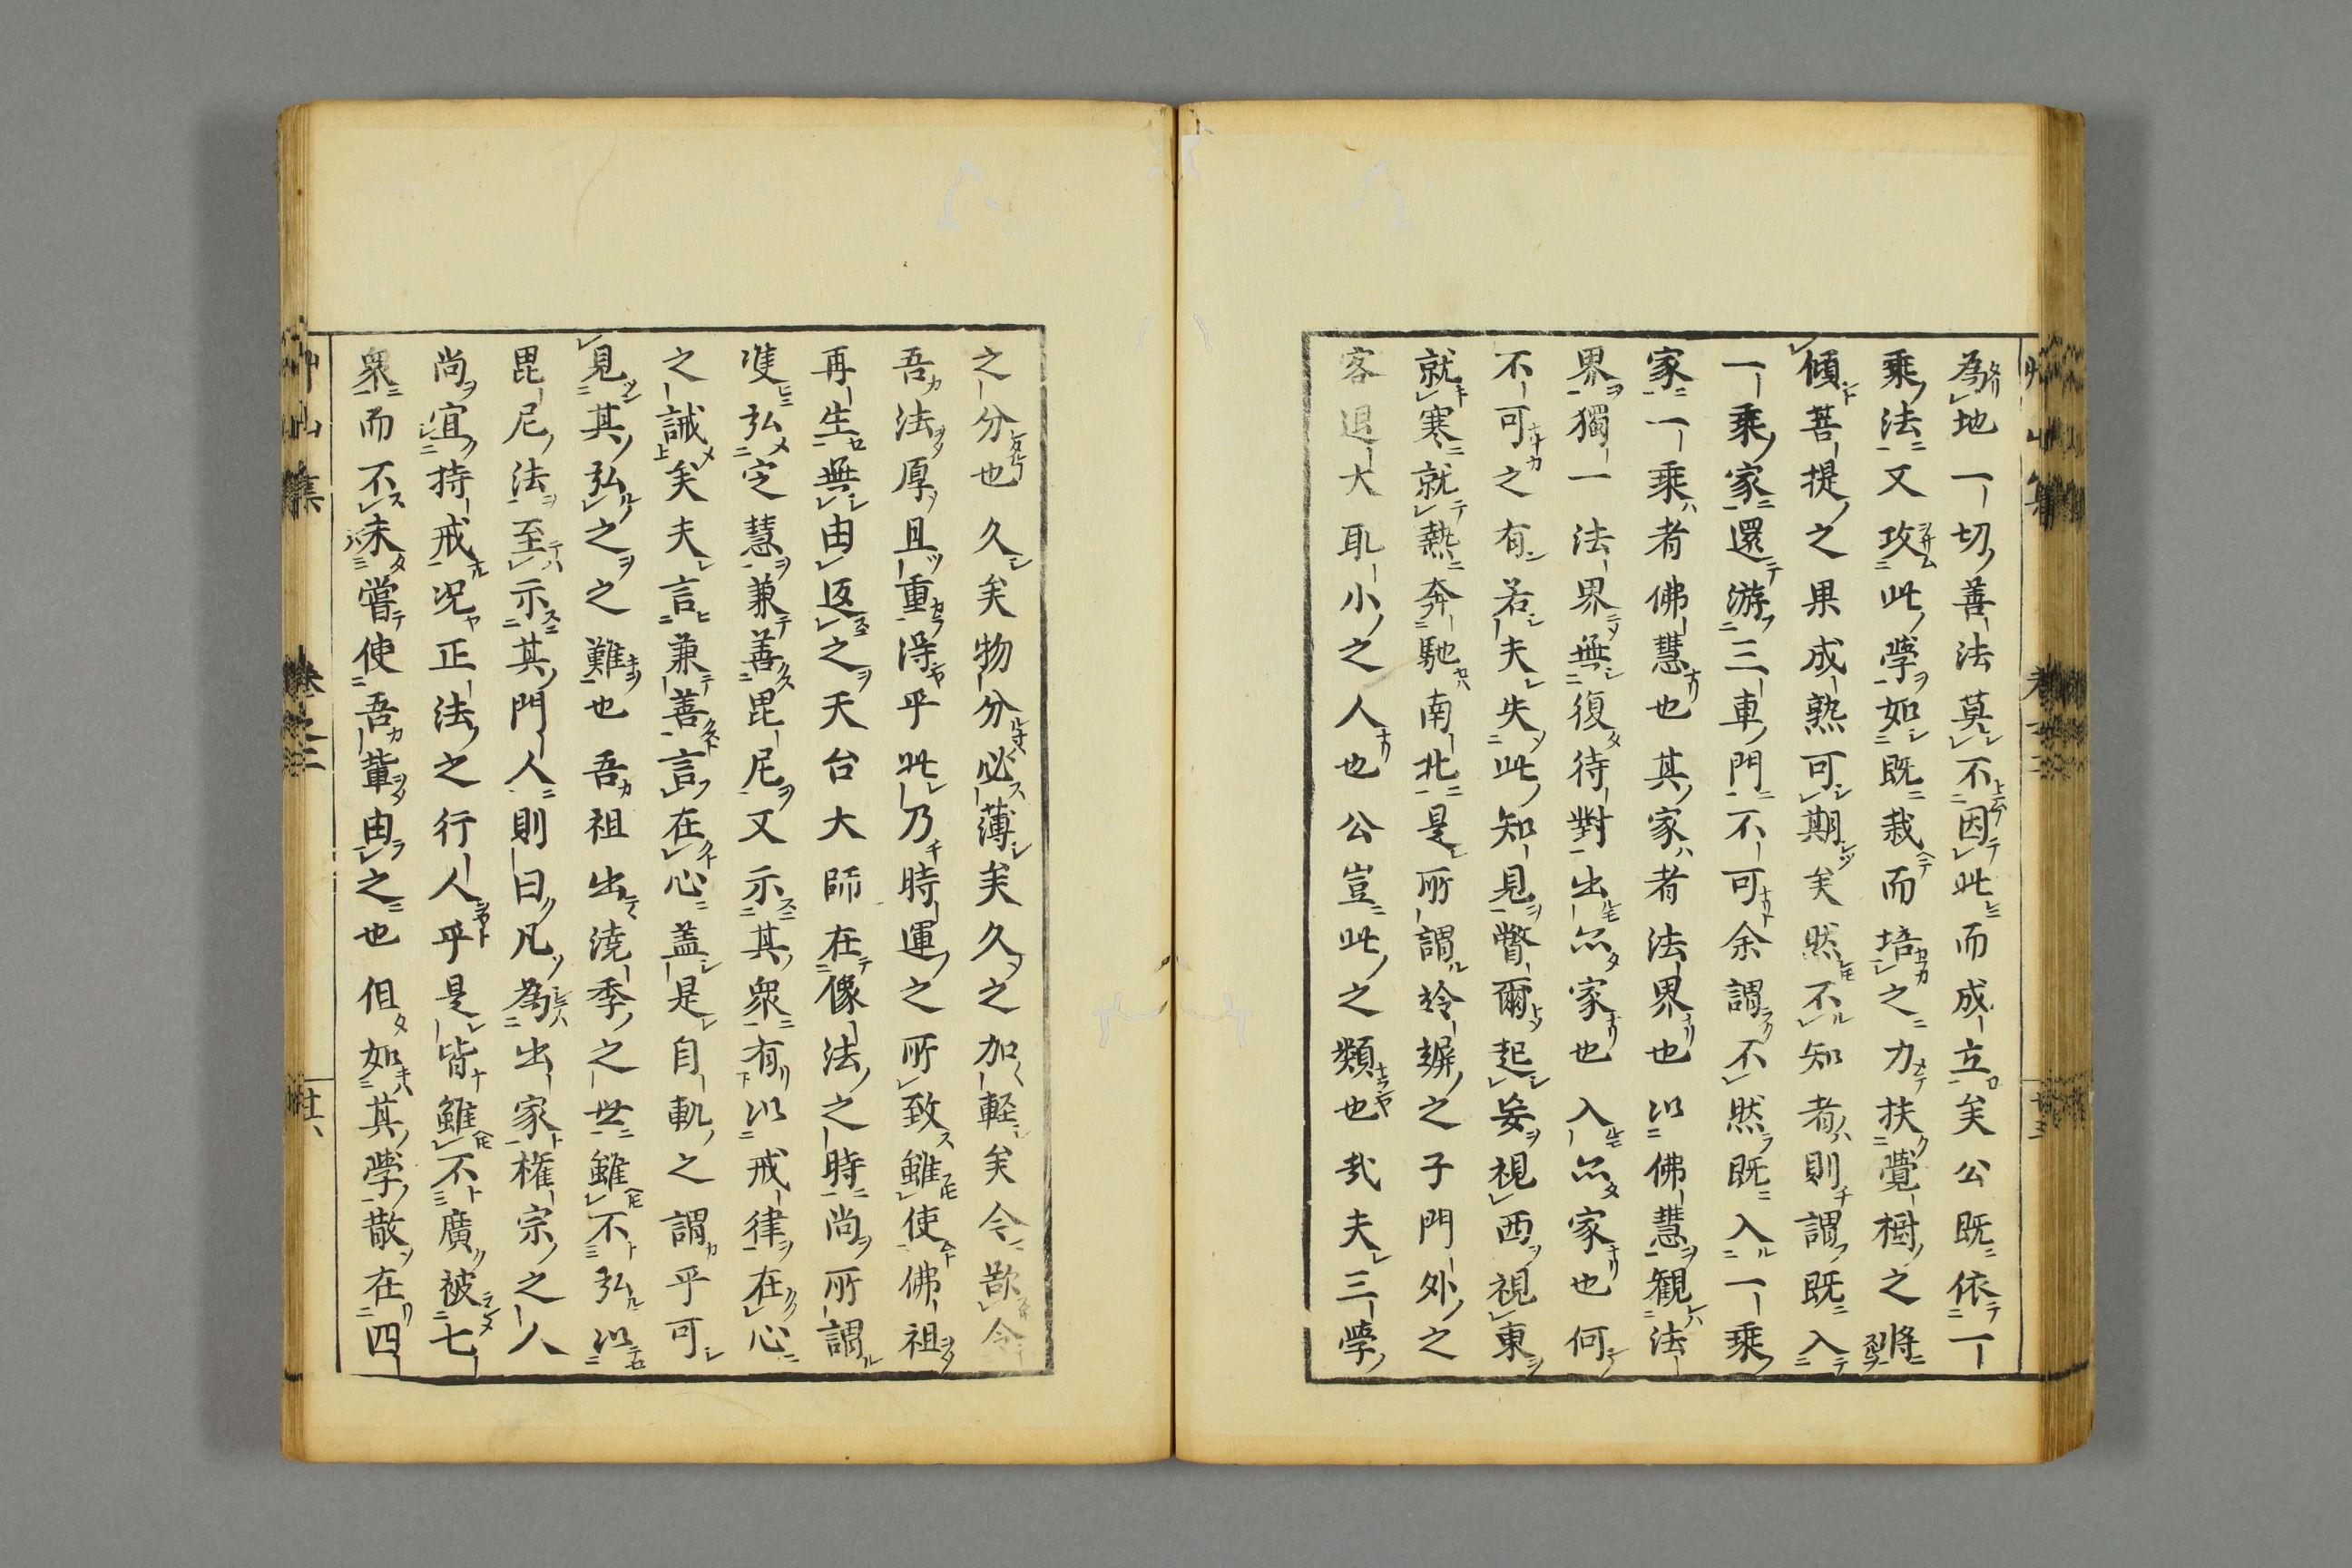 為地一切善法莫不因此而成立矣公既依一
乘法又攻此學如既栽而培之力扶覺樹之將
傾菩提之果成熟可期矣然不知者則謂既入
一乘家還游三車門不可余謂不然既入一乘
家一乘者佛慧也其家者法界也以佛慧観法
界獨一法界無復待對出亦家也入亦家也何
不可之有若夫失此知見瞥爾起妄視西視東
就寒就熱奔馳南北是所謂竛竮之子門外之
客退大取小之人也公豈此之類也哉夫三學
之分也久矣物分必薄矣久之加軽矣今欲令
吾法厚且重得乎此乃時運之所致雖使佛祖
再生無由返之天台大師在像法之時尚所謂
隻弘定慧兼善毘尼又示其衆有以戒律在心
之誡矣夫言兼善言在心盖是自軌之謂乎可
見其弘之之難也吾祖出澆季之世雖不弘以
毘尼法至示其門人則曰凡為出家権宗之人
尚宜持戒况正法之行人乎是皆雖不廣被七
衆而不未嘗使吾輩由之也但如其學散在四
艸山集 巻之三